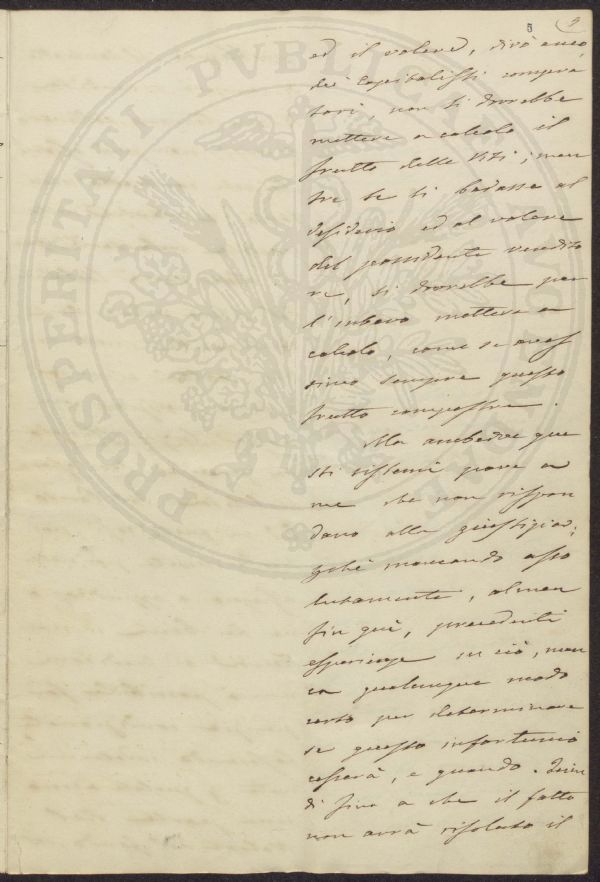 5
9
ed il volere, dirò anco,
dei Capitalisti compra
tori, non si dovrebbe
mettere a calcolo il
frutto delle Viti; men
tre se si badasse al
desiderio ed al volere
del possidente vendito
re, si dovrebbe per
l'intero mettere a
calcolo, come se aves
sero sempre questo
frutto
Ma ambedue que
sti sistemi pare a
me che non rispon
dano alla giustizia;
poichè mancando asso
lutamente, almen
fin quì, precedenti
esperienze su ciò, man
ca qualunque modo
certo per determinare
se questo infortunio
cesserà, e quando. Quin
di fino a che il fatto
non avrà risoluto il
PROSPERITATI PUBLICAE